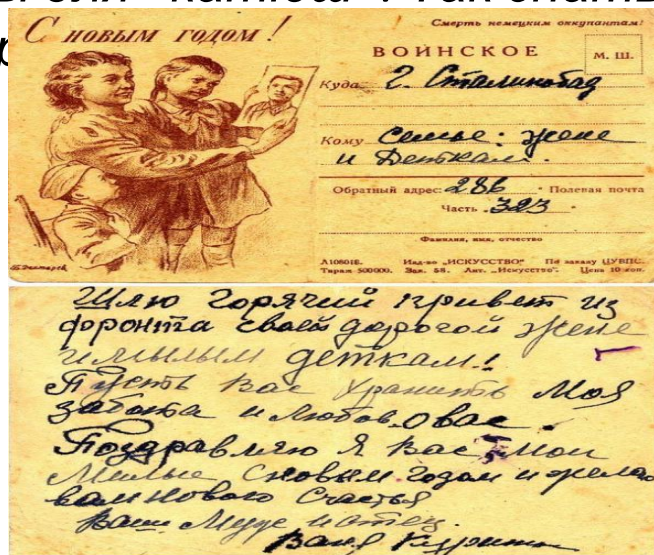 С новым годом!
Смерть немецким оккупантам!
ВОИНСКОЕ
М. Ш.
Куда г. Сталинобад
Кому Семье: жене
и Деткам.
Обратный адрес: 286 Полевая почта
Часть 323
Фамилия, имя, отчество
Изд-во „ИСКУССТВО“ По заказу ЦУВПС.
Тираж 500000. Зак. 58. Лит. „Искусство“. Цена 10 коп.
Шлю горячий привет из
фронта своей дорогой жене
и милым деткам!
Пусть вас хранить моя
забота и любов о вас.
Поздравляю я вас мои
милые с новым годом и желаю
вам нового счастья
Ваш муж и отец.
Ваня